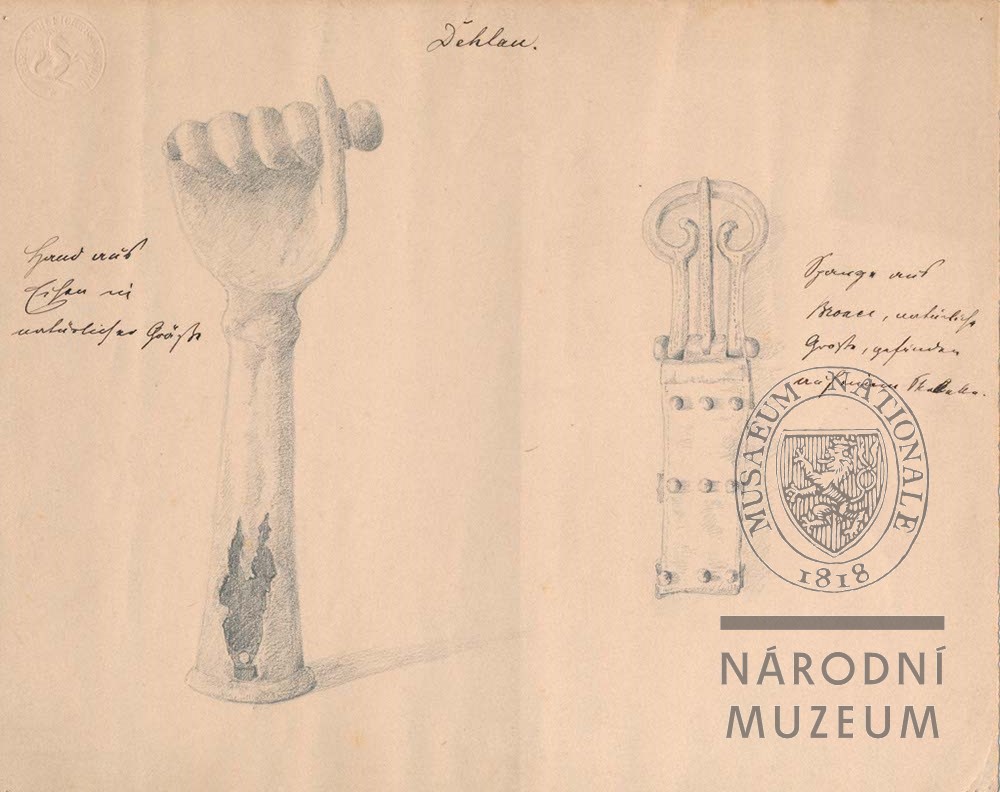 Děhlau.
Hand aus
Eisen in
natürlicher Größe
Spange aus
Bronce, natürliche
Größe, gefunden
auf einem
MUSAEUM NATIONALE
1818
NÁRODNÍ
MUZEUM